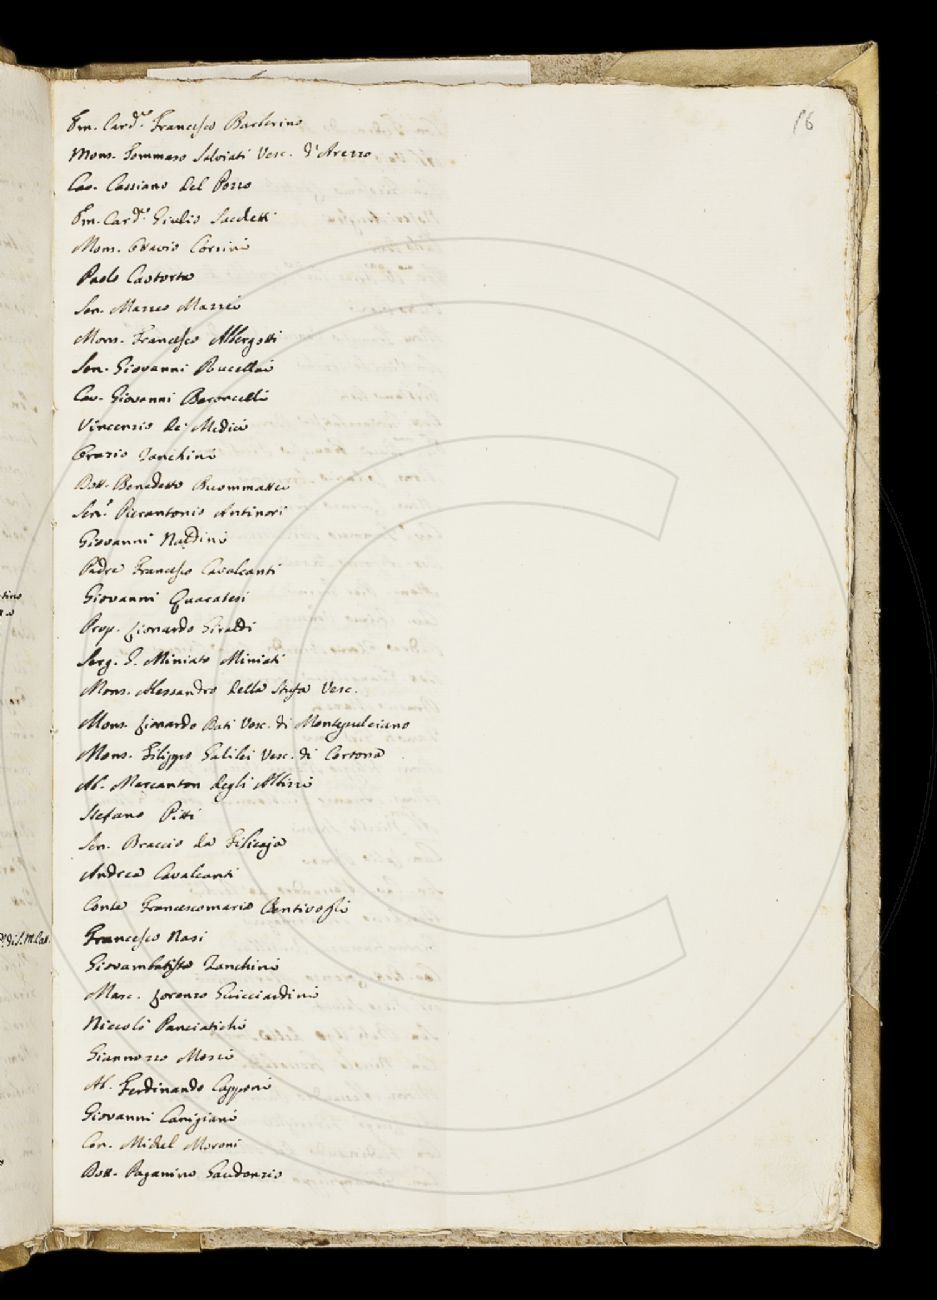 16
Em. Card.le Francesco Barberino
Mons. Tommaso Salviati Vesc. d'Arezzo
Cav. Cassiano del Pozzo
Em. Card.le Giulio Sacchetti
Mons. Ottavio Corsini
Paolo
Sen. Marzio
Mons. Francesco Albergotti
Sen. Giovanni Rucellai
Cav. Giovanni Baroncelli
Vincenzio de' Medici
Orazio Zanchini
Dott. Benedetto Buommattei
Sen.e Pierantonio Antinori
Giovanni Nardini
Padre Francesco Cavalcanti
Giovanni Quaratesi
Prop. Lionardo Giraldi
Serg. G. Miniato Miniati
Mons. Alessandro della Stufa Vesc.
Mons. Lionardo Dati Vesc. di Montepulciano
Mons. Filippo Galilei Vesc. di Cortona
Ab. Marcanton degli Albizzi
Stefano Pitti
Sen. Braccio da Filicaja
Andrea Cavalcanti
Conte Francescomaria Bentivogli
Francesco Nasi
Giovambatista Zanchini
Marc. Lorenzo Guicciardini
Niccolò Panciatichi
Giannozzo
Ab. Ferdinando Capponi
Giovanni Canigiani
Can. Michel Moroni
Dott. Paganino Gaudenzio